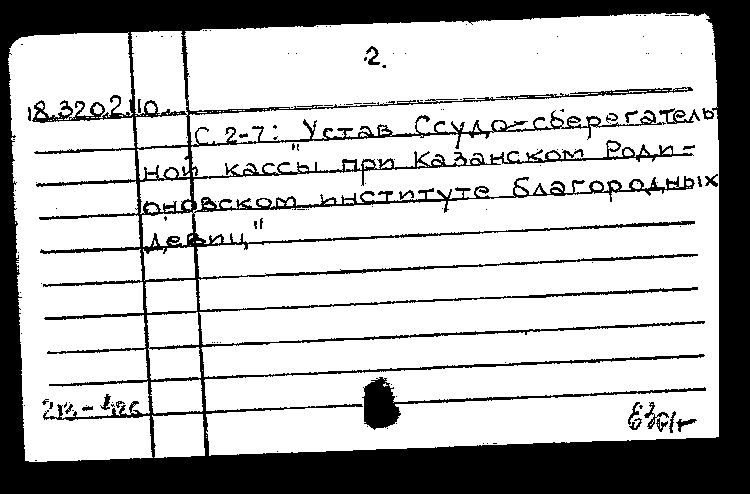 2.
18.320.2.110.
С. 2-7: "Устав Ссудо-сберегатель
ной кассы при Казанском Роди-
оновском институте благородных
девиц"